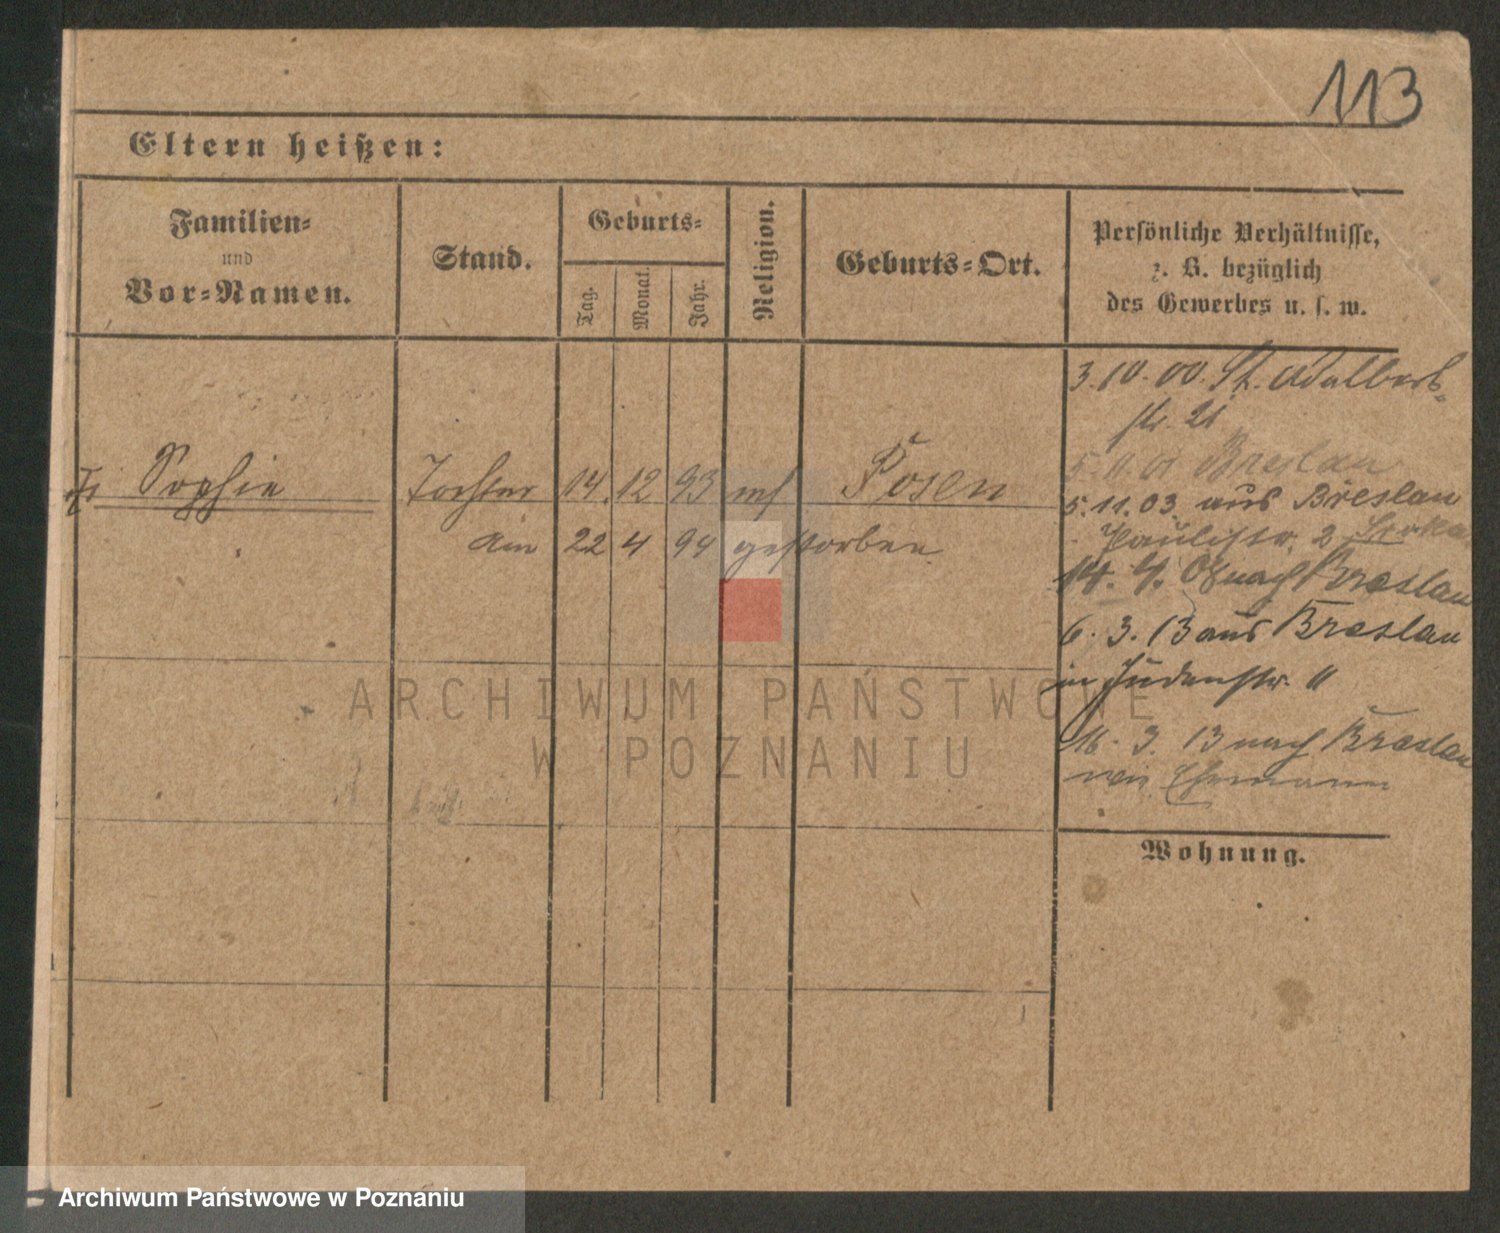 113
Eltern heißen:
Familien-
und
Vor-Namen.
Stand.
Geburts-
Tag.
Monat.
Jahr.
Religion.
Geburts-Ort.
Persönliche Verhältnisse,
z. B. bezüglich
des Gewerbes u. s. w.
3.10.00. St. Adalbert-
str. 21
Breslau
5.11.03. aus Breslau
Paulistr. 2
14. 4. 08 nach Breslau
6. 3. 13 aus Breslau
in Judenstr. 11
16. 3. 13 nach Breslau
Ehemann
Sophie Tochter 14. 12 93 Posen
am 22 4 94 gestorben
Wohnung.
ARCHIWUM PAŃSTWOWE
W POZNANIU
Archiwum Państwowe w Poznaniu